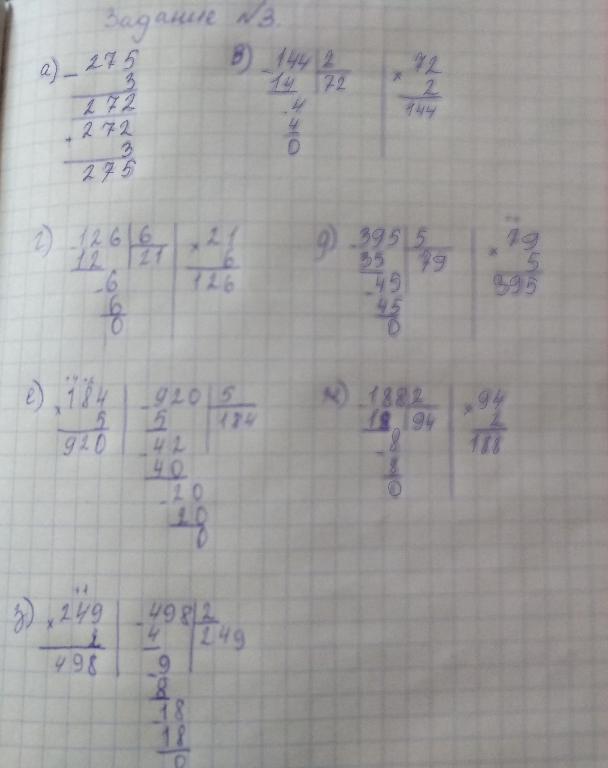 Задание №3.
а) - 275
3
272
+ 272
3
275
в) - 144 | 2
14 | 72
- 4
4
0
× 72
2
144
г) - 126 | 6
12 | 21
- 6
6
0
× 21
6
126
д) - 395 | 5
35 | 79
- 45
45
0
× 79
5
395
е) × 184
5
920
- 920 | 5
5 | 184
- 42
40
- 20
20
0
ж) - 188 | 2
18 | 94
- 8
8
0
× 94
2
188
з) × 249
2
498
- 498 | 2
4 | 249
- 9
8
- 18
18
0